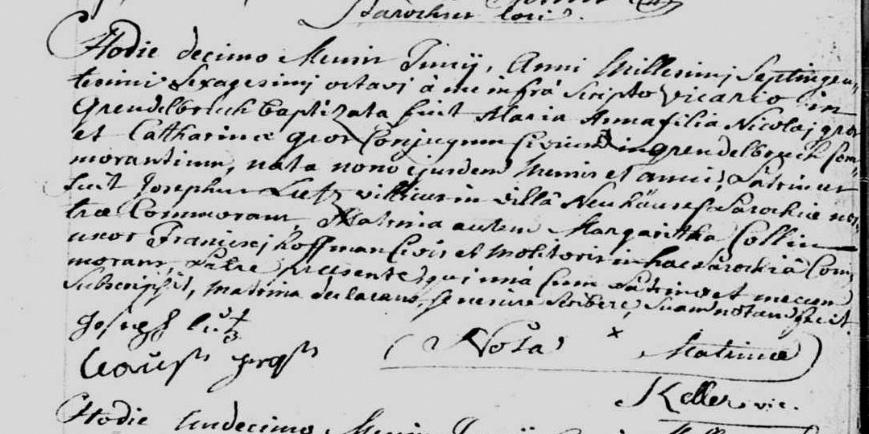 Parochus loci.
Hodie decimo Mensis Junij, Anni Millesimi Septingen-
tesimi Sexagesimi octavi à me infrà scripto vicario in
Grendelbruch baptizata fuit Maria Anna filia Nicolaj gros
et Catharinæ gros Conjugum Civium in grendelbruch Com-
morantium, nata nono ejusdem Mensis et anni; Patrinus
fuit Josephus Lutz villicus in villâ Neuhäuser Parochiæ nos-
træ Commorans Matrina autem Margaritha Collin
uxor Francisci hoffman Civis et Molitoris in hac Parochiâ Com-
morans Patre præsente qui unà cum Patrino et mecum
Subscripsit, matrina declarans se nescire scribere, suam notam fecit.
Joseph lutz
(Nota x Matrinæ)
Keller vic.
Hodie Undecimo Mensis